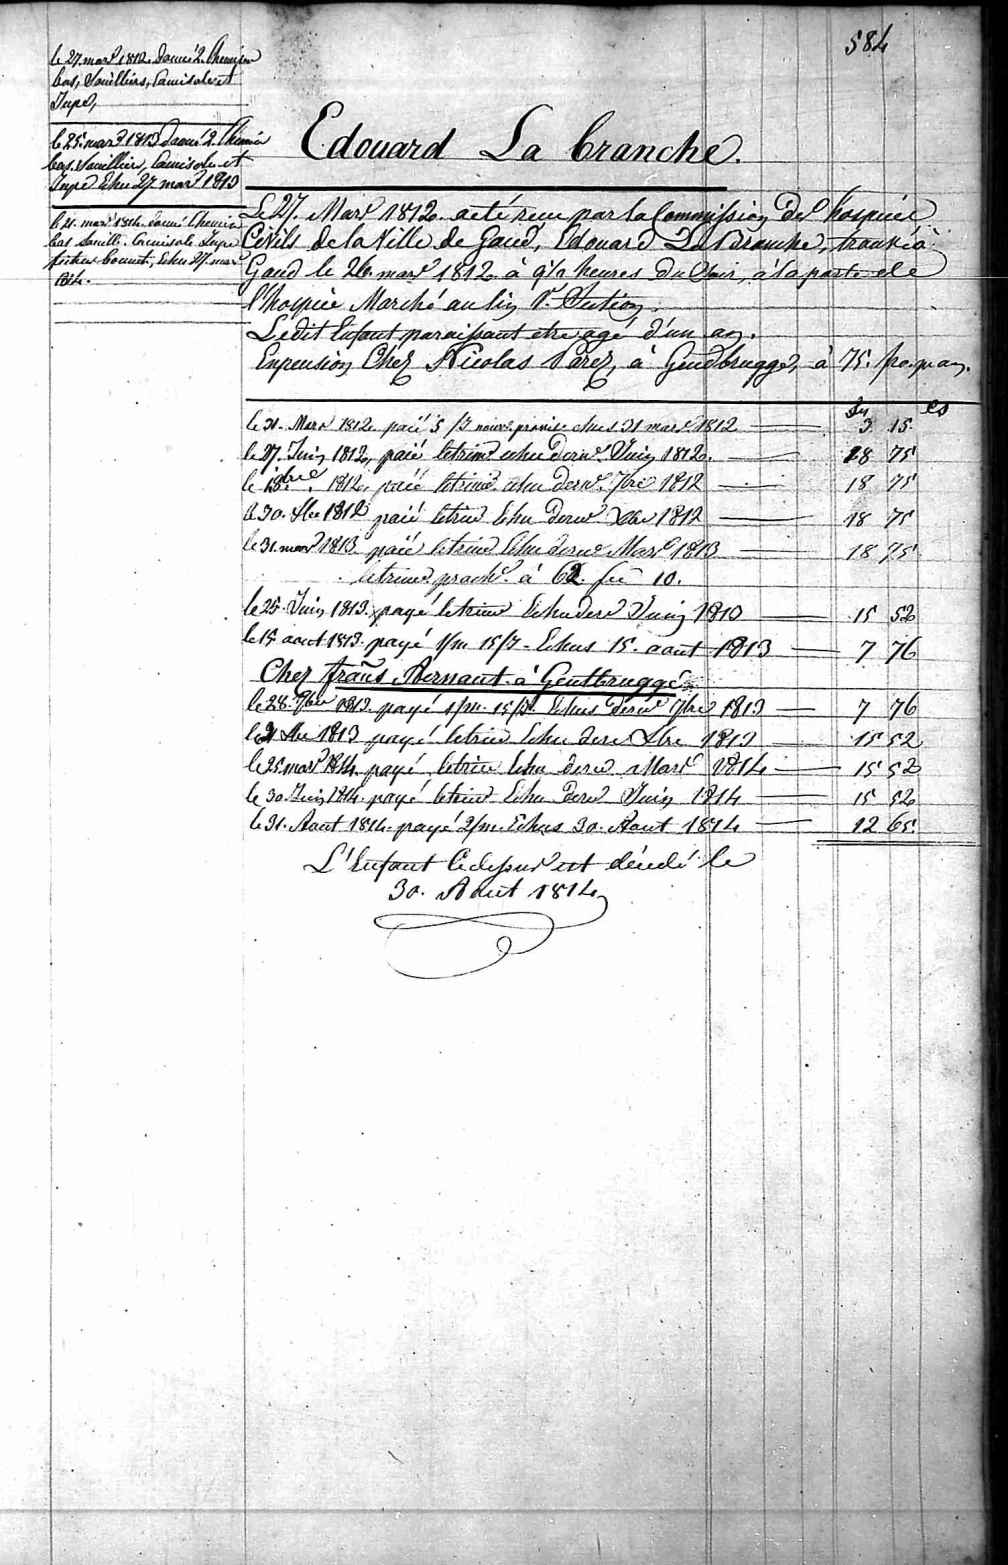 584
le 27. mars 1812. donné 2. Chemises
bas, Souilliers, Camisole et
Jupe,
le 25. mars 1813 donné 2. Chemises
bas, Souilliers, Camisole et
Jupe Echu 27 mars 1813
le 21. mars 1814. donné Chemise
bas Souill. Camisole Jupe
fichu bonnet, Echu 27. mars
1814.
Edouard La branche.
Le 27. Mars 1812. a été reçu par la Commission des hospices
Civils de la Ville de Gand, Edouard La Branche, trouvé à
Gand le 26. mars 1812 à 9 1/2 heures du Soir, à la porte de
l'hospice Marché au lin 1e. Section.
Ledit Enfant paraissant etre agé d'un an.
En pension Chez Nicolas Varez, à Gendbrugge, à 75. frs. par an.
le 31. Mars 1812. paié 5 echus 31 mars 1812 3 15
le 27. Juin 1812, paié le trim echu dern. Juin 1812. 18 75
le 1812. paié le trim. echu dern. 7bre 1812 18 75
le 30. Xbre 1812 paié le trim Echu dern. Xbre 1812 18 75
le 31. mars 1813. paié le trim Echu dern. Mars 1813 18 75
le trim. proch. à 62. 10.
le 25. Juin 1813. payé le trim Echu dern Juin 1813 15 52
le 15 aout 1813. payé 1/m 15/j. Echus 15. aout 1813 7 76
Chez frans Bernaut à Gentbrugge
le 28. 7bre 1813. payé 1/m. 15/j. Echus dern. 7bre 1813 7 76
le 31 Xbre 1813 payé le trim Echu dern Xbre 1813 15 52
le 25 mars 1814. payé le trim Echu dern Mars 1814 15 52
le 30. Juin 1814. payé le trim Echu dern Juin 1814 15 52
le 31. Aout 1814. payé 2/m. Echus 30. Aout 1814 12 65
L'Enfant Cidessus est décédé le
30. Aout 1814